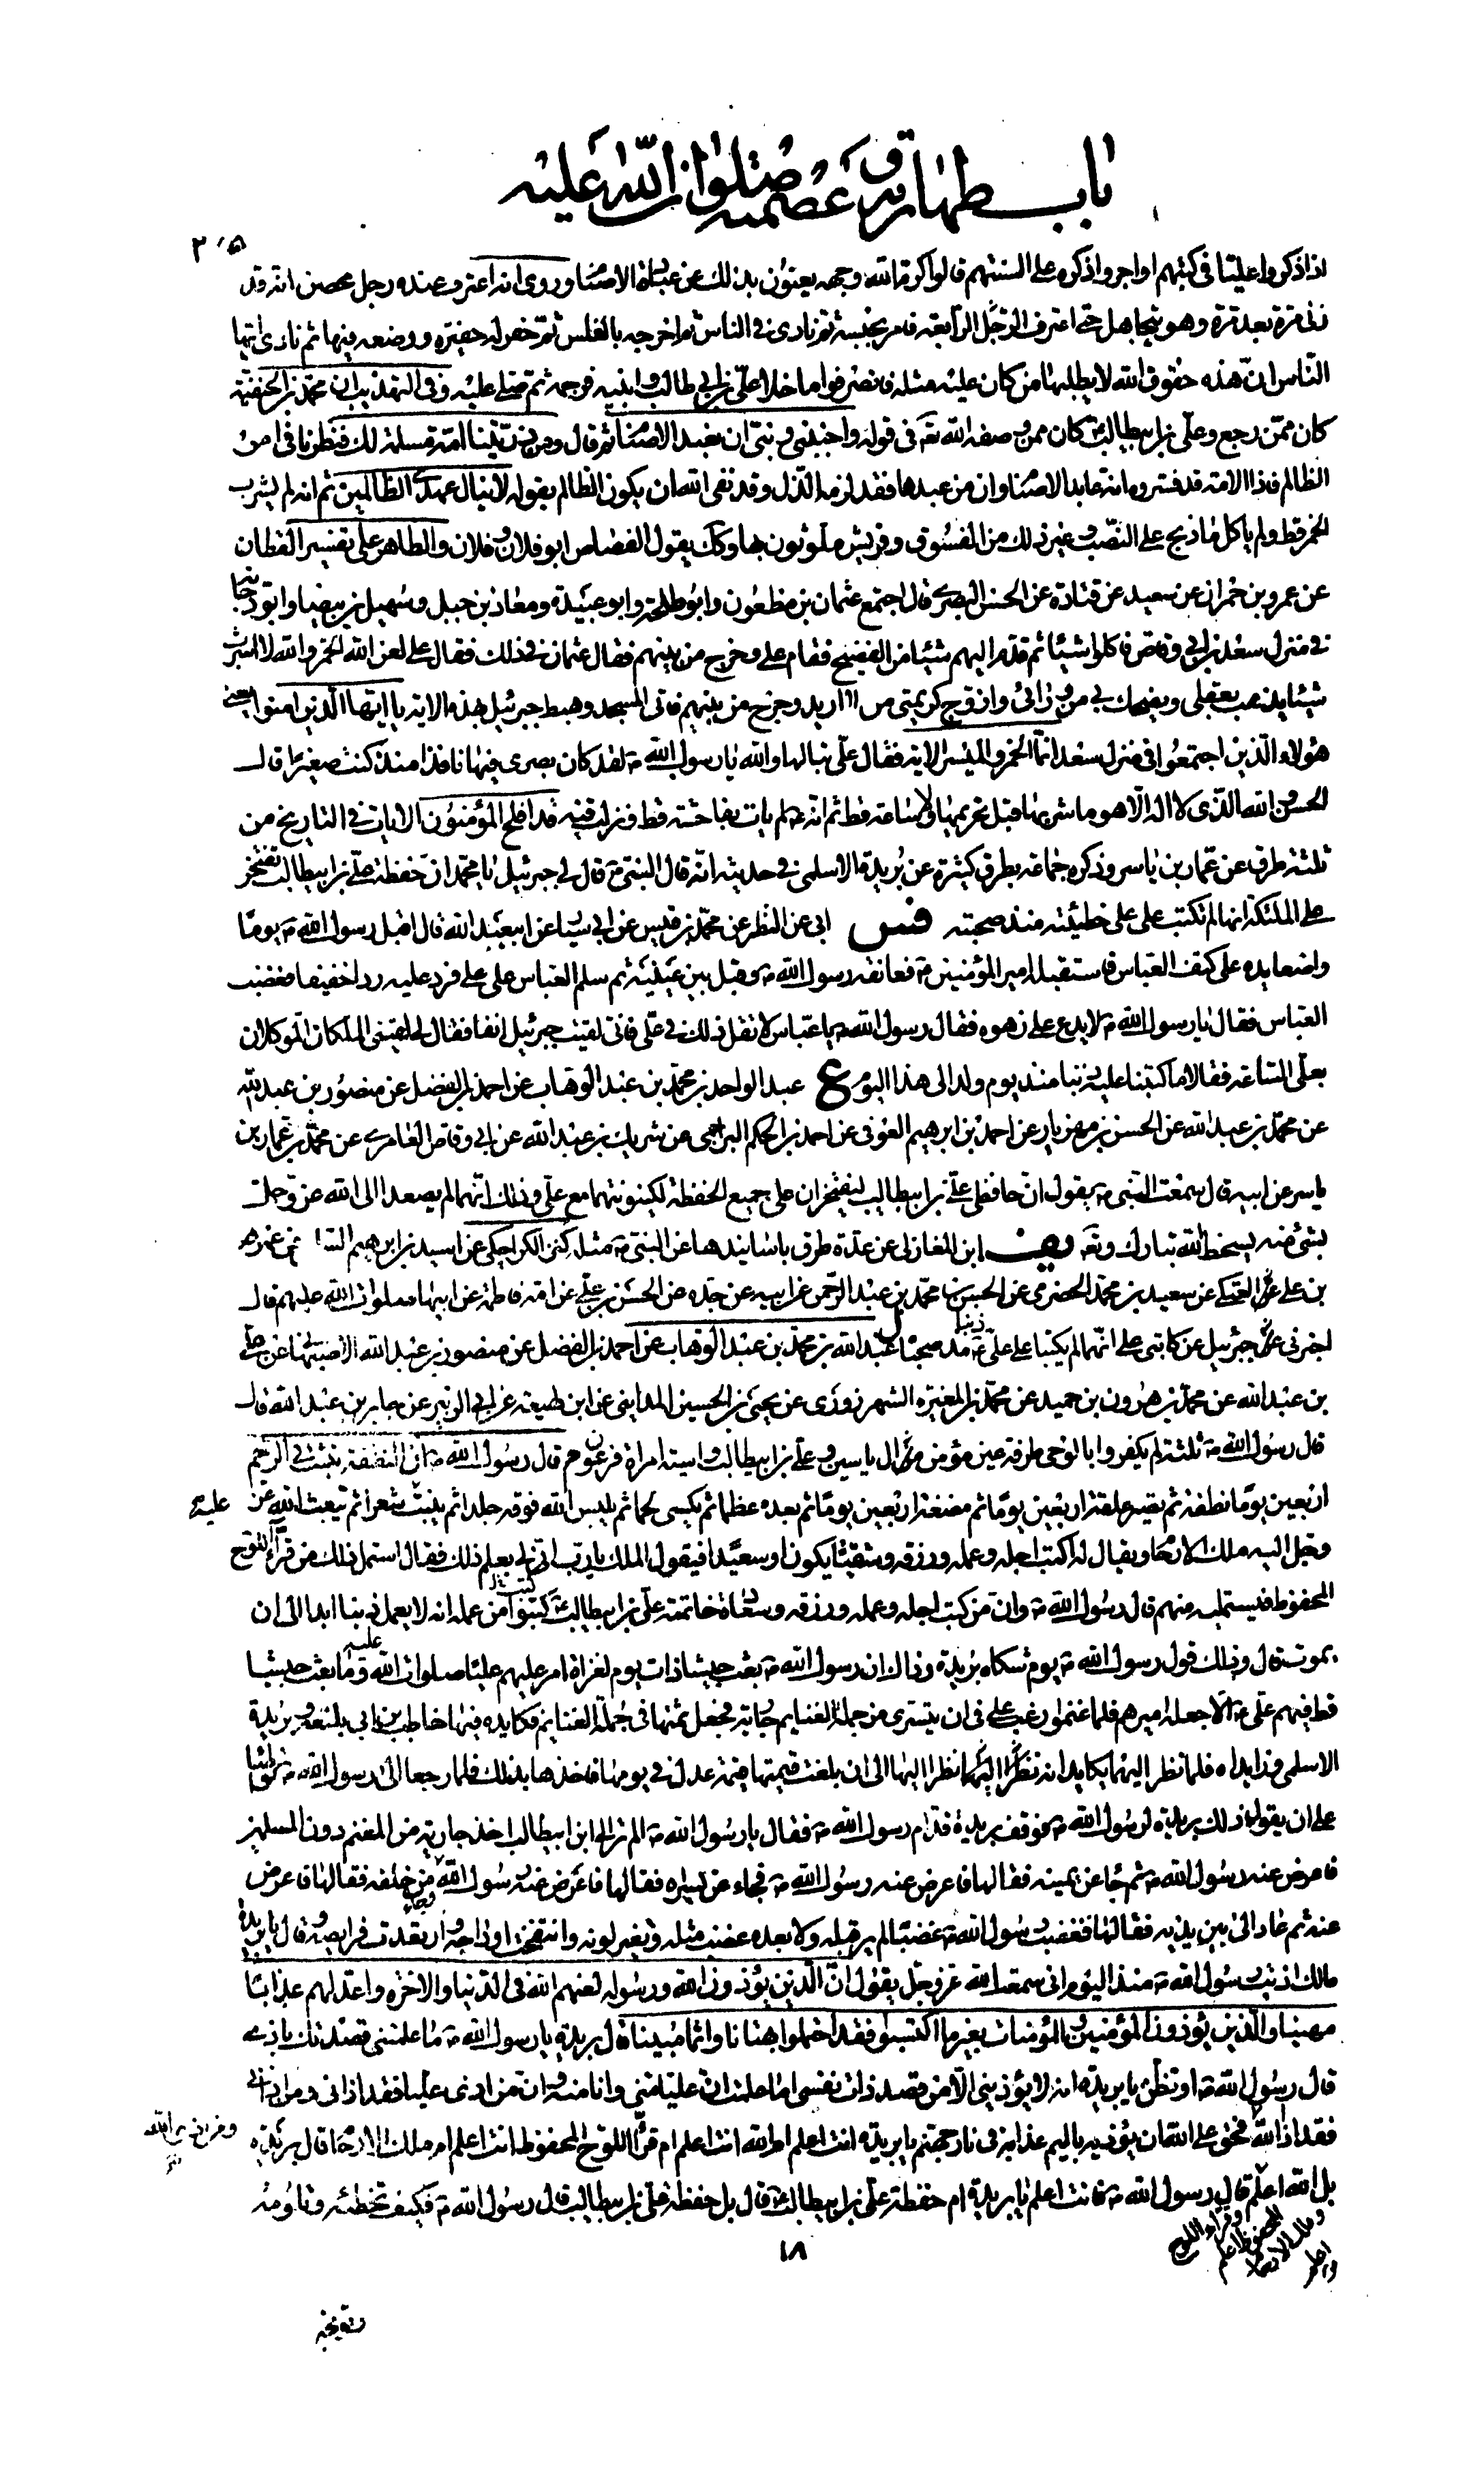 باب طهارته و عصمته صلوات الله عليه
اذا ذكروا عليا في كتبهم او اجروا ذكره على السنتهم قالوا كرم الله وجهه يعنون بذلك عن عبادة الاصنام وروى انه اعترف عنده رجل محصن انه قد
زنى مرة بعد مرة وهو يتجاهل حتى اعترف الرجل الرابعة فامر بحبسه ثم نادى في الناس ثم اخرجه بالغلس ثم حفر له حفيرة ووضعه فيها ثم نادى ايها
الناس ان هذه حقوق الله لا يطلبها من كان عليه مثله فانصرفوا ما خلا علي بن ابي طالب و ابنيه فرجمه ثم صلى عليه وفي التهذيب ان محمد بن الحنفية
كان ممن رجع وعلي بن ابيطالب ع كان ممن وصفه الله تعه في قوله واجنبني وبني ان نعبد الاصنام ثم قال ومن ذريتنا امة مسلمة لك فنظرنا في امر
الظالم فاذا الامة قد فسروه انه عابد الاصنام وان من عبدها فقد لزمه الذل وقد نفى الله ان يكون الظالم بقوله لا ينال عهدي الظالمين ثم انه لم يشرب
الخمر قط ولم ياكل ما ذبح على النصب و غير ذلك من الفسوق وقريش ملوثون بها وكك يقول القصاص ابو فلان و فلان والطاهر علي تفسير القطان
عن عمرو بن حمران عن سعيد عن قتادة عن الحسن البصري قال اجتمع عثمان بن مظعون وابو طلحة وابو عبيدة ومعاذ بن جبل وسهيل بن بيضا وابو دجانة
في منزل سعد بن ابي وقاص فاكلوا شيئا ثم قدم اليهم شيئا من الفضيخ فقام علي وخرج من بينهم فقال عثمان في ذلك فقال علي لعن الله الخمر والله لا اشرب
شيئا يذهب بعقلي ويضحك بي من راني وازوج كريمتي من لا اريد وخرج من بينهم فاتى المسجد وهبط جبرئيل بهذه الاية يا ايها الذين امنوا يعني
هؤلاء الذين اجتمعوا في منزل سعد انما الخمر والميسر الاية فقال علي تبا لها والله يا رسول الله ص لقد كان بصري فيها نافذا منذ كنت صغيرا قال
الحسن والله الذي لا اله الا هو ما شربها قبل تحريمها ولا ساعة قط ثم انه ع لم يات بفاحشة قط ونزلت فيه قد افلح المؤمنون الايات في التاريخ من
ثلثة طرق عن عمار بن ياسر وذكره جماعة بطرق كثيرة عن بريدة الاسلمي في حديثه انه قال النبي ص قال لي جبرئيل يا محمد ان حفظة علي بن ابيطالب تفتخر
على الملئكة انها لم تكتب على علي خطيئة منذ صحبته فس ابي عن النضر عن محمد بن قيس عن ابي سيار عن ابيعبد الله قال اقبل رسول الله ص يوما
واضعا يده على كتف العباس فاستقبله امير المؤمنين ع فعانقه رسول الله ص وقبل بين عينيه ثم سلم العباس على علي فرد عليه ردا خفيفا فغضب
العباس فقال يا رسول الله ص لا يدع علي زهوه فقال رسول الله ص يا عباس لا تقل ذلك في علي فاني لقيت جبرئيل انفا فقال لي لقيني الملكان الموكلان
بعلي الساعة فقالا ما كتبنا عليه ذنبا منذ يوم ولد الى هذا اليوم ع عبد الواحد بن محمد بن عبد الوهاب عن احمد بن الفضل عن منصور بن عبد الله
عن محمد بن عبد الله عن الحسن بن مهزيار عن احمد بن ابرهيم العوفي عن احمد بن الحكم البراجمي عن شريك بن عبد الله عن ابي وقاص العامري عن محمد بن عمار بن
ياسر عن ابيه قال سمعت النبي ص يقول ان حافظي علي بن ابيطالب ليفتخران على جميع الحفظة لكينونتهما مع علي وذلك انهما لم يصعدا الى الله عز وجل
بشئ منه يسخط الله تبارك وتعه يف ابن المغازلي عن عدة طرق باسانيدها عن النبي ص مثله كنز الكراجكي عن اسيد بن ابرهيم السلمي عن عمر
بن علي العتكي عن سعيد بن محمد الحضرمي عن الحسن بن محمد بن عبد الرحمن عن ابيه عن جده عن الحسن بن علي عن امه فاطمة عن ابيها صلوات الله عليهم قال
اخبرني جبرئيل عن كاتبي علي انهما لم يكتبا على علي ع ذنبا مذ صحباه ل عبد الله بن محمد بن عبد الوهاب عن احمد بن الفضل عن منصور بن عبد الله الاصبهاني عن علي
بن عبد الله عن محمد بن هرون بن حميد عن محمد بن المغيرة الشهرزوري عن يحيى بن الحسين المدايني عن ابن لهيعة عن ابي الزبير عن جابر بن عبد الله قال
قال رسول الله ص ثلثة لم يكفروا بالوحي طرفة عين مؤمن ال ياسين و علي بن ابيطالب واسية امراة فرعون م قال رسول الله ص ان النطفة تثبت في الرحم
اربعين يوما نطفة ثم تصير علقة اربعين يوما ثم مضغة اربعين يوما ثم بعده عظما ثم يكسى لحما ثم يلبس الله فوقه جلدا ثم ينبت عليه شعرا ثم يبعث الله عز
وجل اليه ملك الارحام ويقال له اكتب اجله وعمله ورزقه وشقيا يكون او سعيدا فيقول الملك يا رب انى لي بعلم ذلك فقال استمل ذلك من قراء اللوح
المحفوظ فيستمليه منهم قال رسول الله ص وان من كتب اجله وعمله ورزقه وسعادة خاتمته علي بن ابيطالب كتبوا من عمله انه لا يعمل ذنبا ابدا الى ان
يموت قال وذلك قول رسول الله ص يوم شكاه بريدة وذاك ان رسول الله ص بعث جيشا ذات يوم لغزاة امر عليهم عليا صلوات الله عليه وما بعث جيشا
قط فيهم علي ع الا جعله اميرهم فلما غنموا رغب علي في ان يشتري من جملة الغنايم جارية فجعل ثمنها في جملة الغنايم فكايده فيها حاطب بن ابي بلتعة و بريدة
الاسلمي وزايداه فلما نظر اليهما يكايدانه نظر اليها الى ان بلغت قيمتها قيمة عدل في يومها فاخذها بذلك فلما رجعا الى رسول الله ص تواطئا
على ان يقول ذلك بريدة لرسول الله ص فوقف بريدة قدام رسول الله ص فقال يا رسول الله ص الم تر الى ابن ابيطالب اخذ جارية من المغنم دون المسلمين
فاعرض عنه رسول الله ص ثم جاء عن يمينه فقالها فاعرض عنه رسول الله ص فجاء عن يساره فقالها فاعرض عنه رسول الله وجاء من خلفه فقالها فاعرض
عنه ثم عاد الى بين يديه فقالها فغضب رسول الله ص غضبا لم ير قبله ولا بعده غضب مثله وتغير لونه وانتفخت اوداجه وارتعدت فرايصه وقال يا بريدة
مالك اذيت رسول الله ص منذ اليوم اني سمعت الله عز وجل يقول ان الذين يؤذون الله ورسوله لعنهم الله في الدنيا والاخرة واعد لهم عذابا
مهينا والذين يؤذون المؤمنين و المؤمنات بغير ما اكتسبوا فقد احتملوا بهتانا واثما مبينا قال بريدة يا رسول الله ص ما علمتني قصدتك باذى
قال رسول الله ص او تظن يا بريدة انه لا يؤذيني الا من قصد ذات نفسي اما علمت ان عليا مني وانا منه وان من اذى عليا فقد اذاني ومن اذاني
فقد اذى الله ومن اذى الله فحق على الله ان يؤذيه باليم عذابه في نار جهنم يا بريدة انت اعلم ام الله انت اعلم ام قراء اللوح المحفوظ انت اعلم ام ملك الارحام قال بريدة
بل الله اعلم وقراء اللوح المحفوظ اعلم وملك الارحام اعلم قال رسول الله ص فانت اعلم يا بريدة ام حفظة علي بن ابيطالب ع قال بل حفظة علي بن ابيطالب قال رسول الله ص فكيف تخطئه وتلومه
١٨
وتوبخه